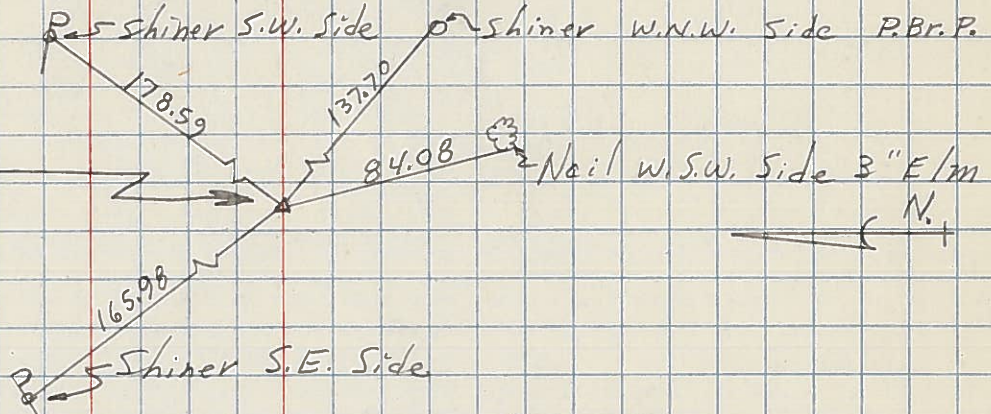 P Shiner S.W. Side Shiner W.N.W. Side P.Br.P.
178.59 137.70
84.08 Nail W.S.W. Side 3" Elm
N.
165.98
P Shiner S.E. Side